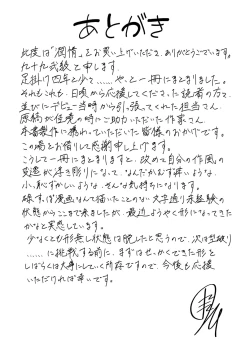 あとがき
此度は「潤情」をお買い上げいただき、ありがとうございます。
九十九武級と申します。
足掛け四年と少し……や、と一冊にまとまりました。
それもこれも、日頃から応援してくださった読者の方々、
並びにデビュー当時から引っ張ってくれた担当さん、
原稿が佳境の時にご助力いただいた作家さん、
本書製作に携わっていただいた皆様のおかげです。
この場をお借りして感謝申し上げます。
こうして一冊にまとまりますと、改めて自分の作風の
変遷が浮き彫りになって、なんだかむず痒いような、
小っ恥ずかしいような、そんな気持ちになります。
碌すっぽ漫画なんて描いたことのない文字通り未経験の
状態からここまで来ましたが、最近ようやく形になってきた
かなと実感しています。
少なくとも形無し状態は脱したと思うので、次は型破り
……に挑戦する前に、まずはせっかくできた形を
しばらくは大事にしていく所存ですので、今後も応援
いただければ幸いです。